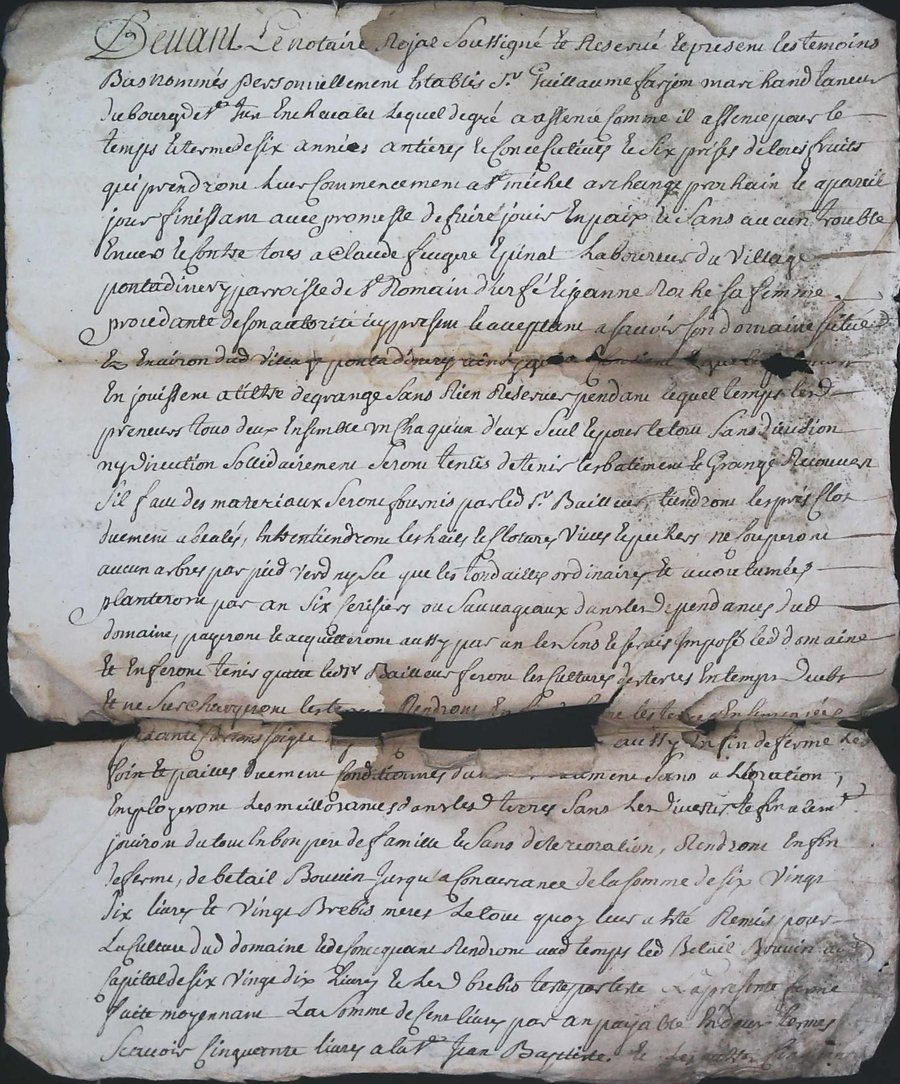 Devant Le notaire Rojal Soussigné et Reservé et presens les temoins
Bas nommés personnellement Establis Sr Guillaume farjon marchand taneur
du bourg de St Just En chevalet Lequel de gré a assencé comme il assence pour le
temps et terme de six années antieres et Consecutives et Six prises de tous fruits
qui prendront Leur Commencement a St michel archange prochain et a pareil
jour finissant avec promesse de faire jouir En paix et Sans aucun trouble
Envers et Contre tous a Claude feugere Epinat Laboureur du Village
pontadiney parroisse de St Romain d'urfé et janne Roche sa femme
procedante de son autorité icy present et acceptant a sçavoir son domaine situé
Et Environ dud Village pontadiney
En jouissent a tiltre de grange Sans Rien Reserver pendant lequel temps lesd
preneurs tous deux Ensemble un Chaqu'un d'eux Seul et pour le tout Sans division
ny discution Sollidairement Seront tenus de tenir les batiment et Grange Recouvert
S'il faut des materiaux Seront fournis par led Sr Bailleur, tiendront les prés Clos
duement abealés, Entretiendront les haies et Clotures Vives et peches ne Couperont
aucun arbres par pied Verd ny Sec que les tondailles ordinaires et acoutumées
planteront par an Six Cerisiers ou Sauvageaux dans les dependances dud
domaine, payeront et acquitteront aussy par an les Sens et servis Imposé led domaine
Et En feront tenir quitte led Sr Bailleur feront les Cultures des terres En temps deubt
Et ne Surchargeront les terres Rendront En les terres Ensemencées
aussy En fin de ferme Les
foint et pailles duement Conditionnés Sans alteration,
Employeront Les meilloraments dans lesd terres Sans Les divertir et fin
jouiront du tout En bon pere de famille et Sans deterioration, Rendront En fin
de ferme, de betail Bouvin Jusqu'a Concurance de la somme de six Vingt
dix livres et Vingt Brebis meres Le tout quoy leur a été Remis pour
La Culture dud domaine Rendront aud temps led Betail Bouvin au
Capital de six Vingt dix Livres et Lesd brebis teste par teste La presente ferme
faite moyennant La Somme de Cent livres par an payable En deux termes
Scavoir Cinquante livres a la St Jean Baptiste et Les autres Cinquante